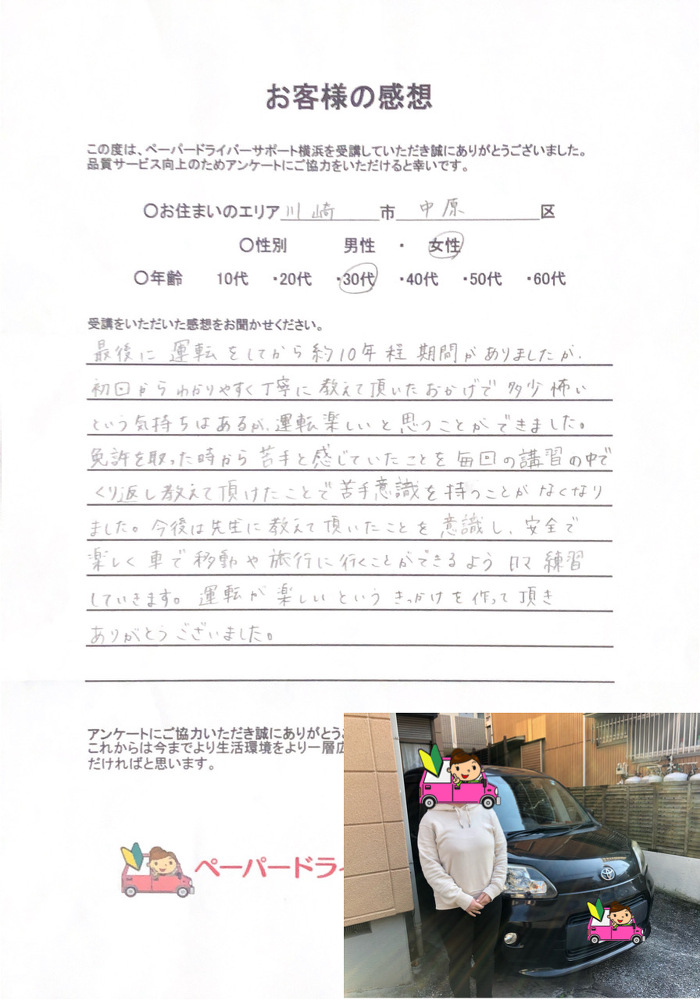 お客様の感想
この度は、ペーパードライバーサポート横浜を受講していただき誠にありがとうございました。
品質サービス向上のためアンケートにご協力をいただけると幸いです。
〇お住まいのエリア 川崎 市 中原 区
〇性別 男性 ・ 女性
〇年齢 10代 ・20代 ・30代 ・40代 ・50代 ・60代
受講をいただいた感想をお聞かせください。
最後に運転をしてから約10年程期間がありましたが、
初回からわかりやすく丁寧に教えて頂いたおかげで多少怖い
という気持ちはあるが、運転楽しいと思うことができました。
免許を取った時から苦手と感じていたことを毎回の講習の中で
くり返し教えて頂けたことで苦手意識を持つことがなくなり
ました。今後は先生に教えて頂いたことを意識し、安全で
楽しく車で移動や旅行に行くことができるよう日々練習
していきます。運転が楽しいというきっかけを作って頂き
ありがとうございました。
アンケートにご協力いただき誠にありがとう
これからは今までより生活環境をより一層広
だければと思います。
ペーパードライ